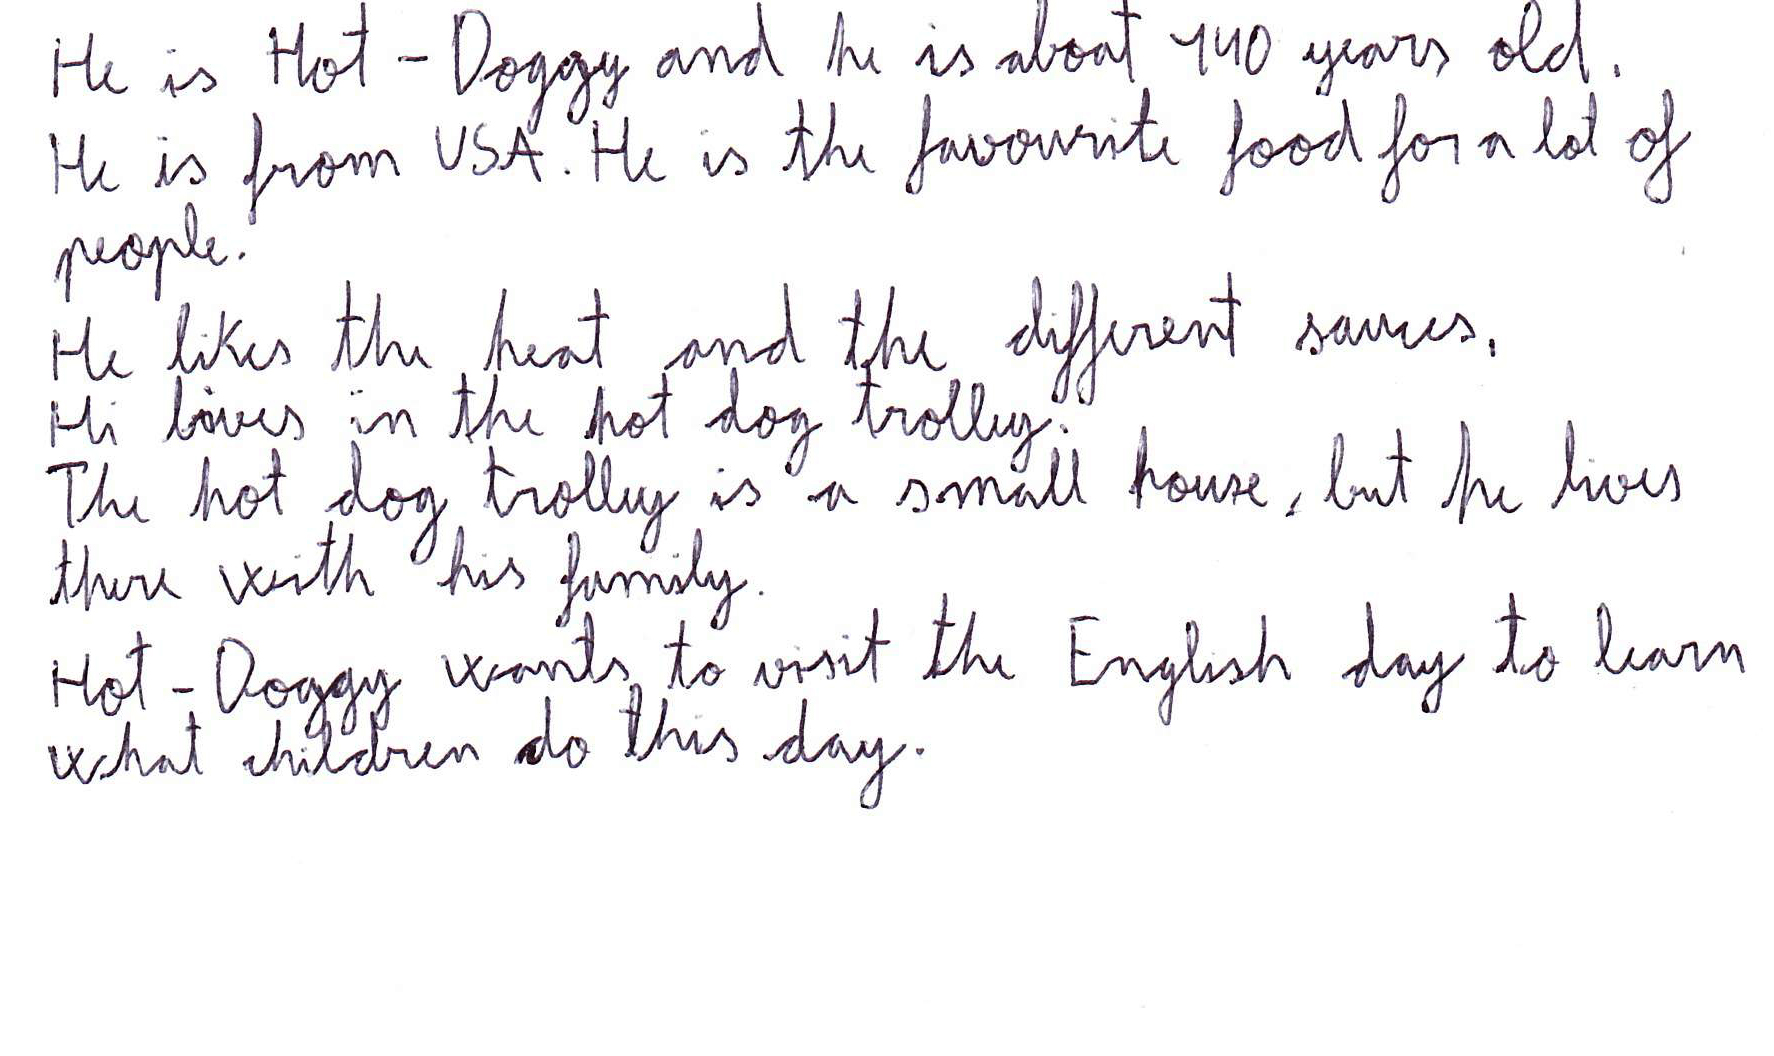 He is Hot - Doggy and he is about 140 years old.
He is from USA. He is the favourite food for a lot of
people.
He likes the heat and the different sauces.
Hi lives in the hot dog trolley.
The hot dog trolley is a small house, but he lives
there with his family.
Hot - Doggy wants to visit the English day to learn
what children do this day.